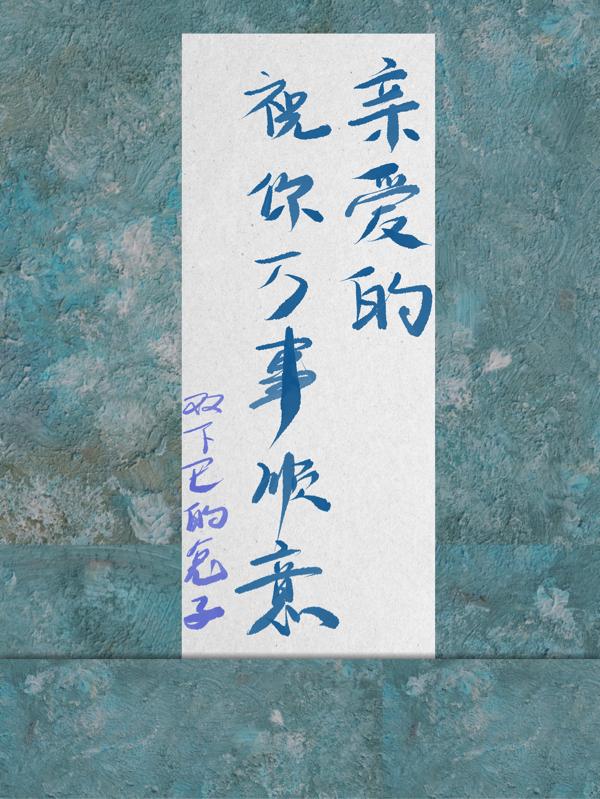 亲爱的
祝你万事顺意
双下巴的兔子